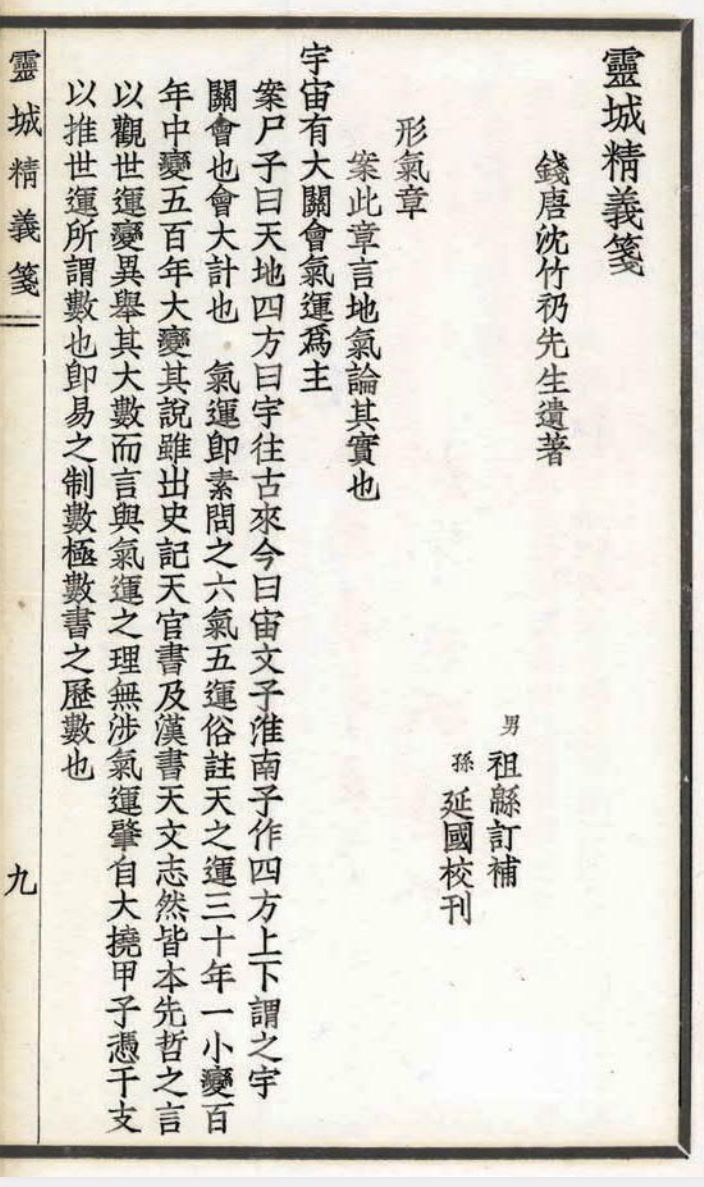 靈城精義箋
錢唐沈竹礽先生遺著
男 祖緜訂補
孫 延國校刊
形氣章
案此章言地氣論其實也
宇宙有大關會氣運爲主
案尸子曰天地四方曰宇往古來今曰宙文子淮南子作四方上下謂之宇
關會也會大計也 氣運卽素問之六氣五運俗註天之運三十年一小變百
年中變五百年大變其說雖出史記天官書及漢書天文志然皆本先哲之言
以觀世運變異舉其大數而言與氣運之理無涉氣運肇自大撓甲子憑干支
以推世運所謂數也卽易之制數極數書之歷數也
靈城精義箋
九